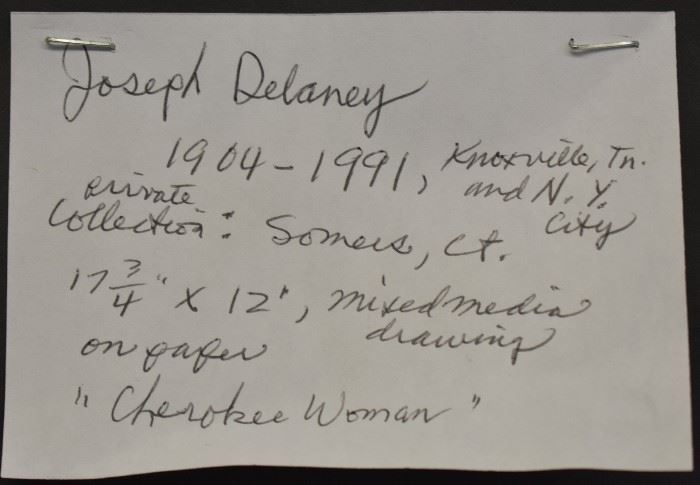 Joseph Delaney
1904-1991, Knoxville, Tn.
and N.Y.
City
private
Collection: Somers, Ct.
17 3/4" x 12", mixed media
drawing
on paper
"Cherokee Woman"